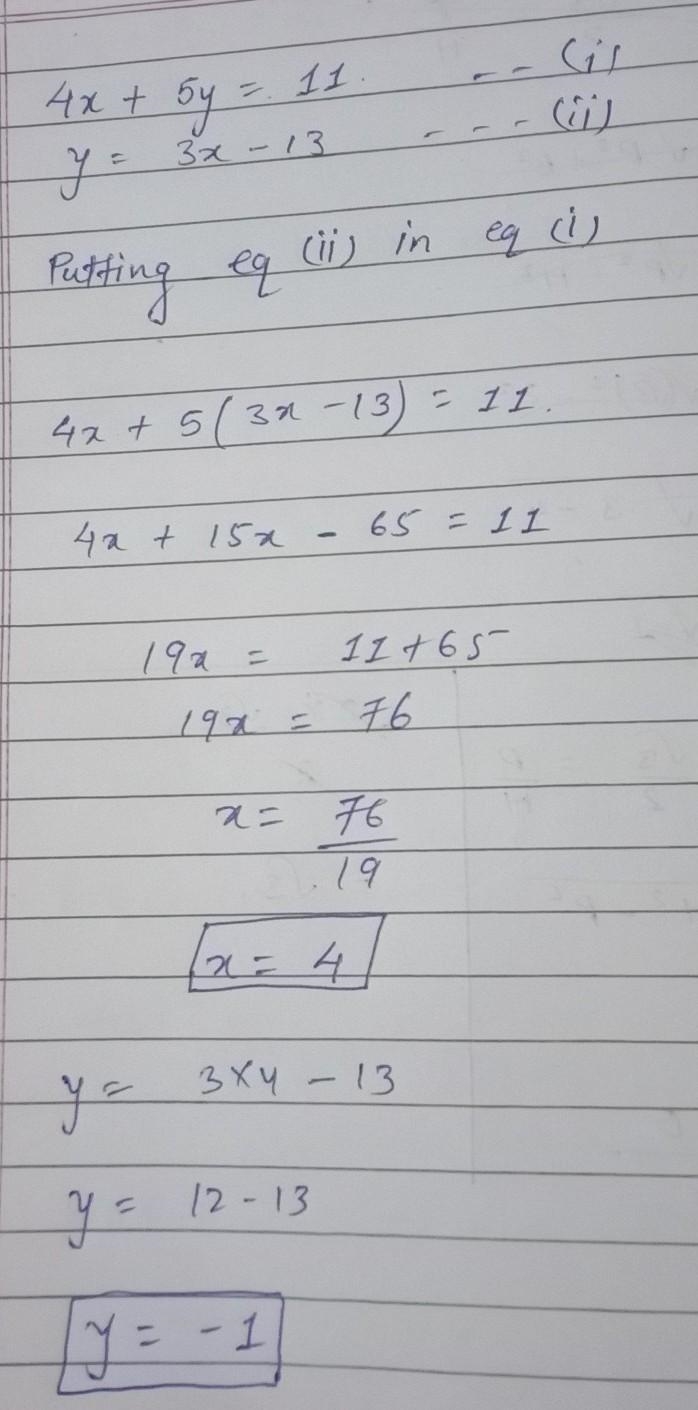 4x + 5y = 11. -- (i)
y = 3x - 13 --- (ii)
Putting eq (ii) in eq (i)
4x + 5(3x - 13) = 11.
4x + 15x - 65 = 11
19x = 11 + 65
19x = 76
x = 76/19
x = 4
y = 3×4 - 13
y = 12 - 13
y = -1